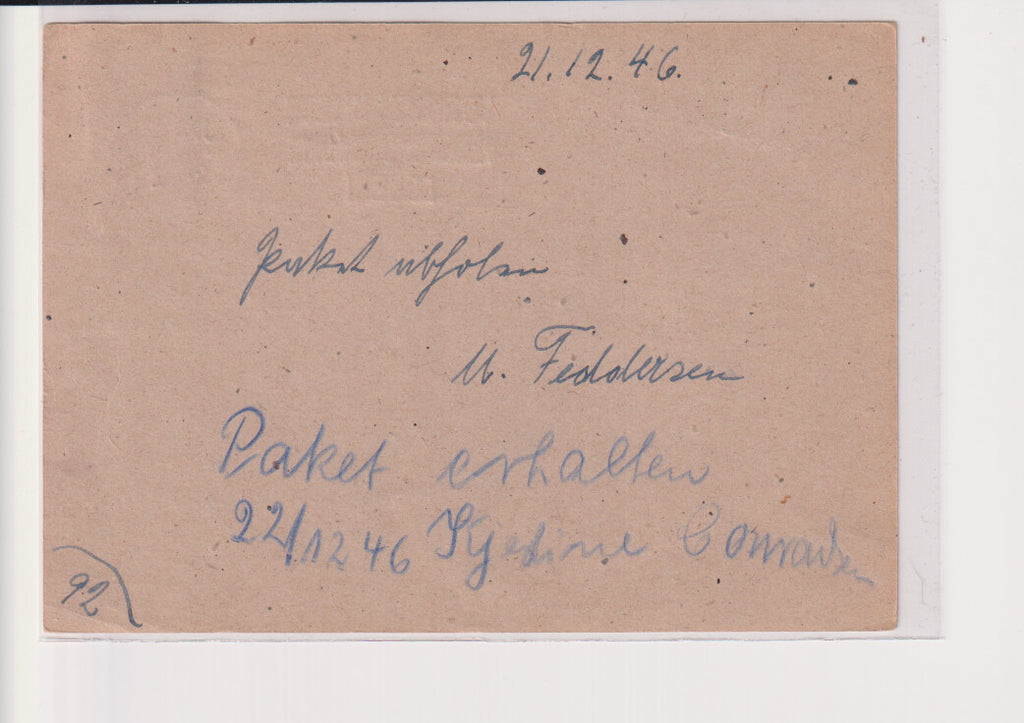 21.12.46.
Paket abholen
M. Feddersen
Paket erhalten
22/12 46 Kjestine Conradsen
92